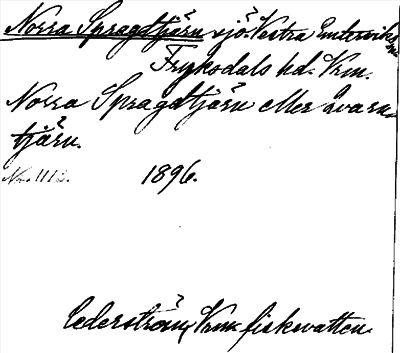 Norra Spragdtjärn sjö. Vestra Emtervik sn
Fryksdals hd. Vrm.
Norra Spragdtjärn eller Svarttjärn.
1896.
Cederström, Vrm fiskevatten.